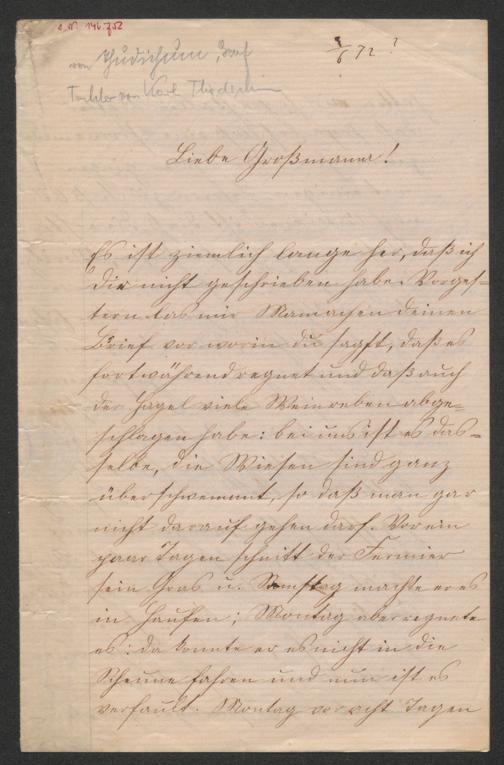 a. N. 146.752
von Thudichum, Graf
Tochter von Karl Thudichum
3/6 72?
Liebe Großmama!
Es ist ziemlich lange her, daß ich
dir nicht geschrieben habe. Vorges-
tern las mir Mamachen deinen
Brief vor worin du sagst, daß es
fortwährend regnet und daß auch
der Hagel viele Weinreben abge-
schlagen habe: bei uns ist es das-
selbe, die Wiesen sind ganz
überschwemmt, so daß man gar
nicht darauf gehen darf. Vor ein
paar Tagen schnitt der Fermier
sein Gras u. Samstag machte er es
in Haufen; Montag aber regnete
es: da konnte er es nicht in die
Scheune fahren und nun ist es
verfault. Montag vor acht Tagen